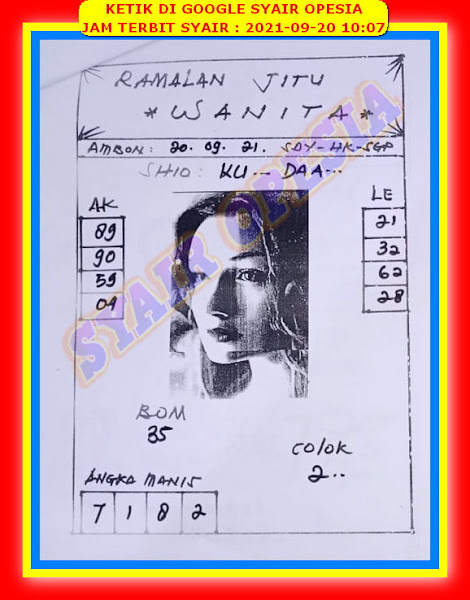 KETIK DI GOOGLE SYAIR OPESIA
JAM TERBIT SYAIR : 2021-09-20 10:07
RAMALAN JITU
* WANITA *
AMBON: 20. 09. 21. SDY-HK-SGP
SHIO: KU... DAA...
AK
89
90
59
04
LE
21
32
62
28
SYAIR OPESIA
BOM
35
COLOK
2..
ANGKA MANIS
7 1 8 2